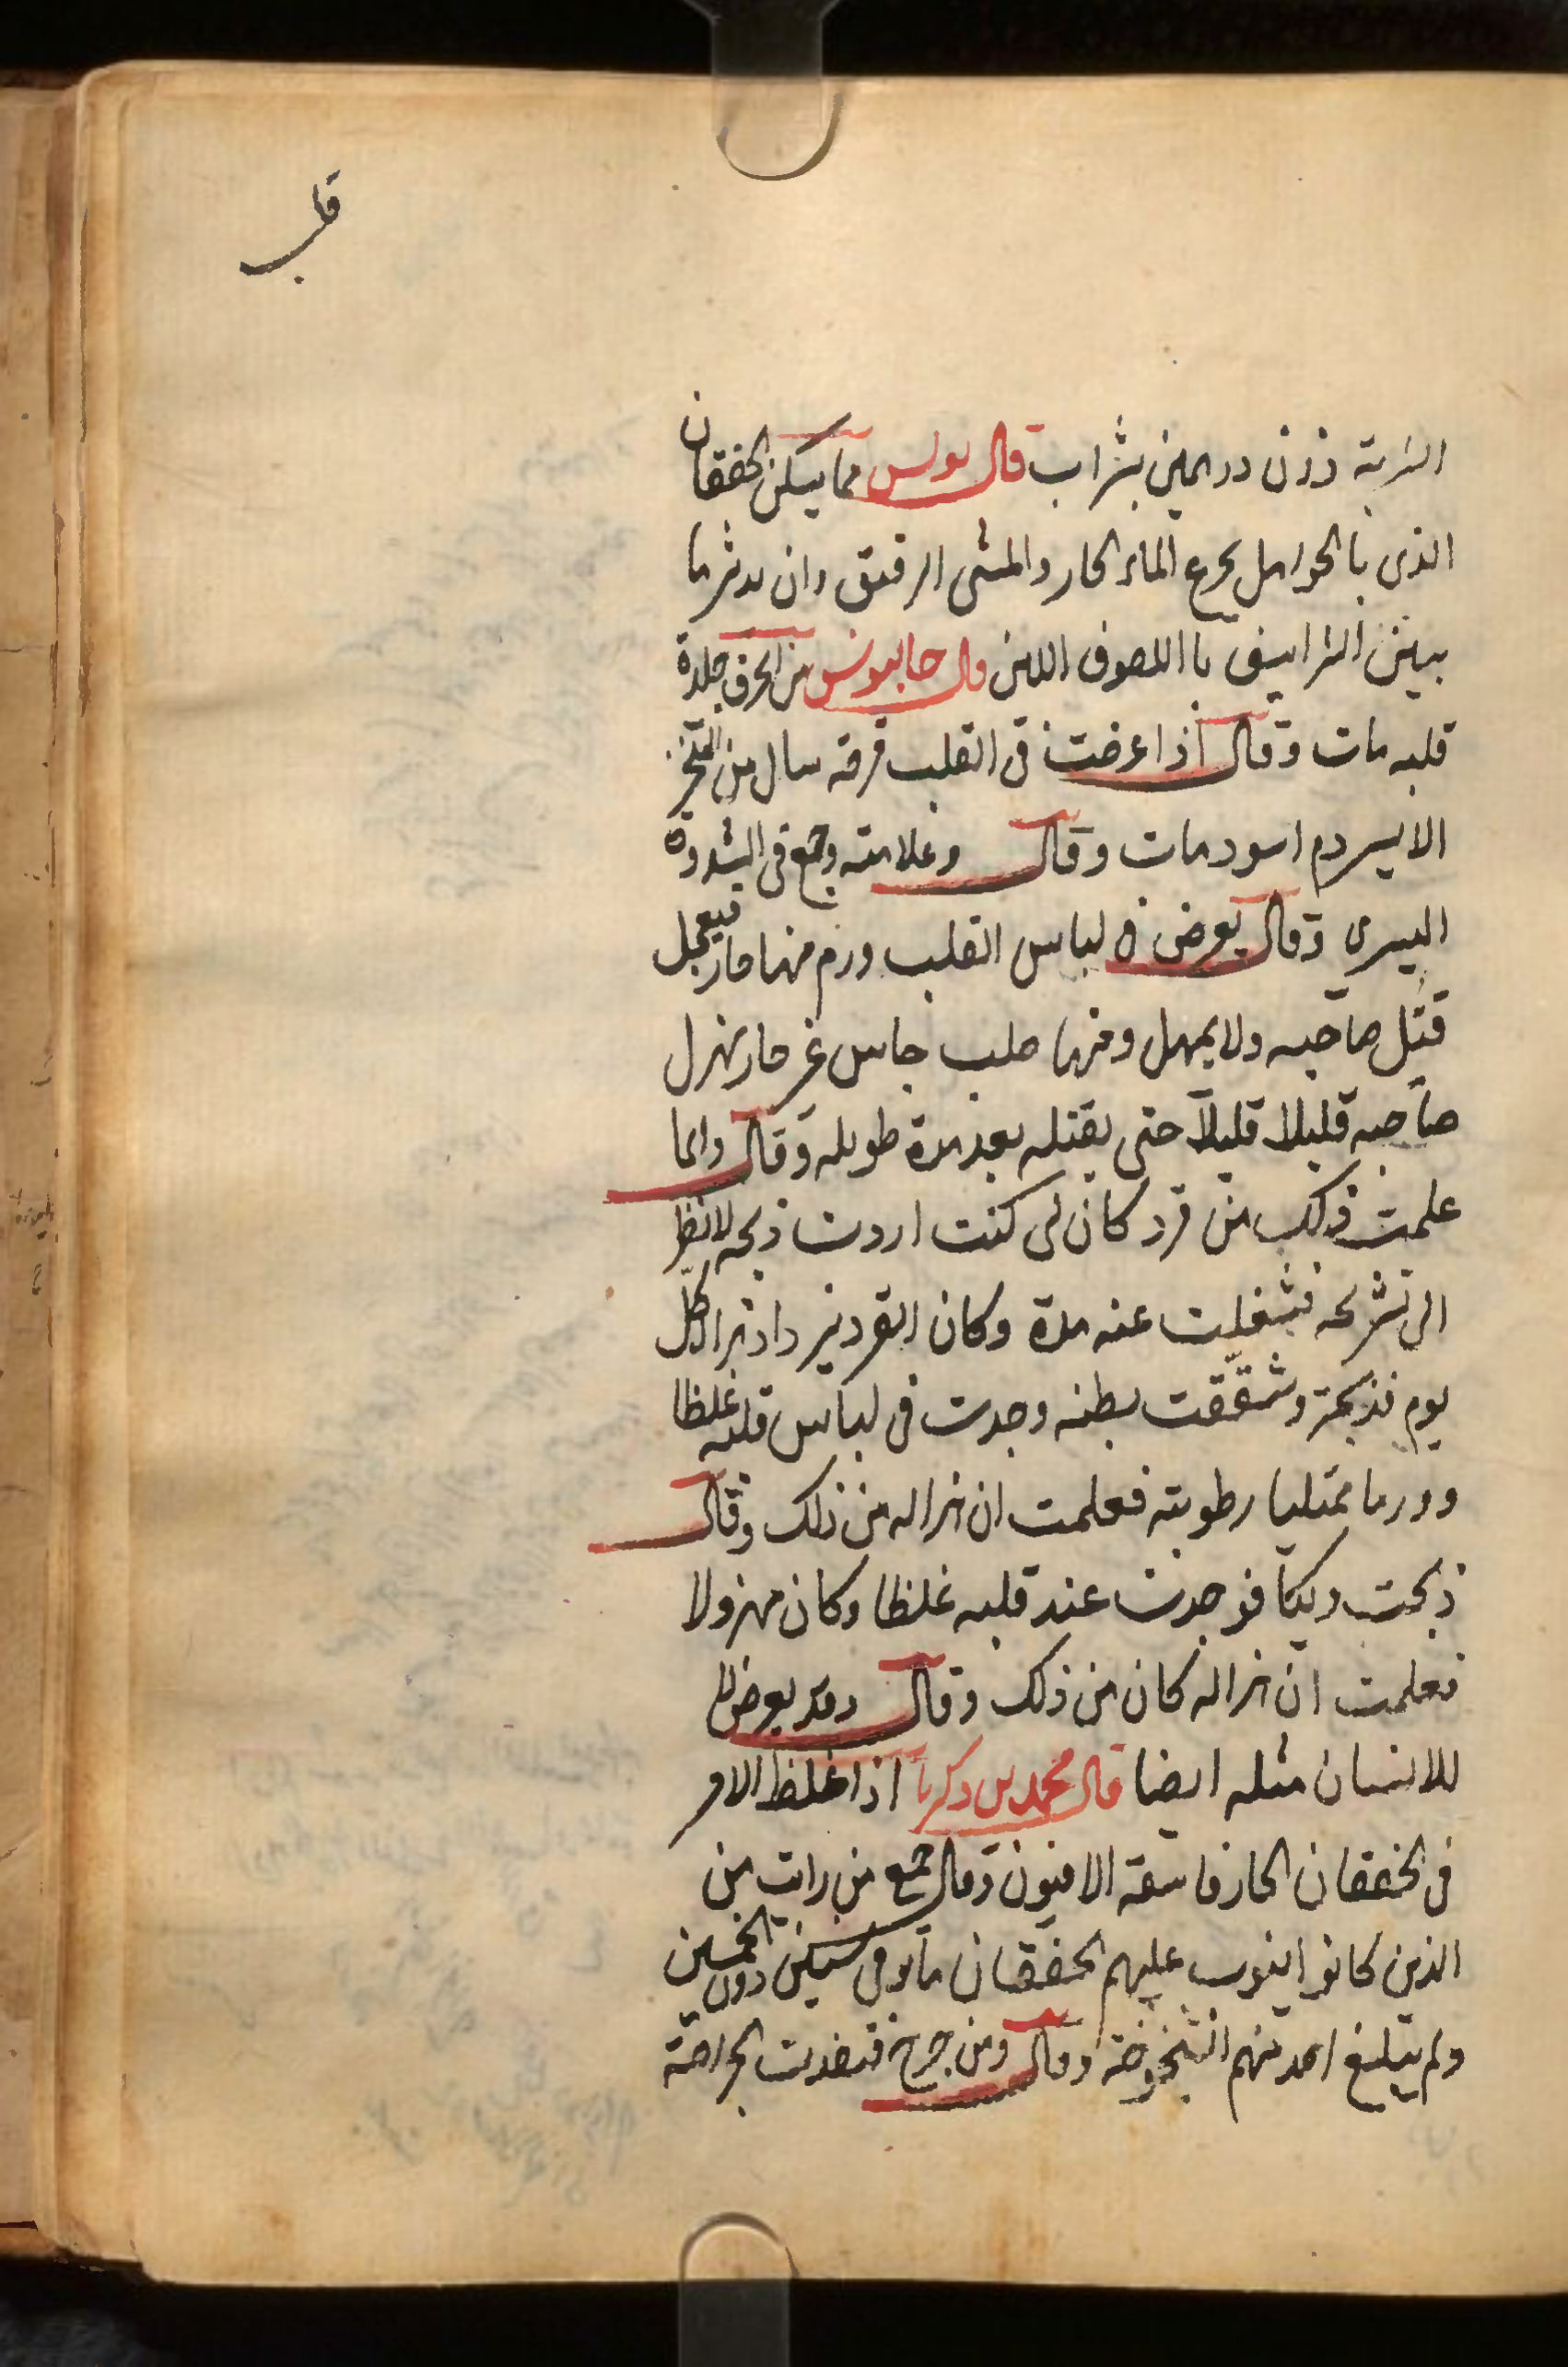 قلب
الشربة وزن درهمين بشراب قال بولس مما يسكن الخفقان
الذى بالحوامل بجرع الماء الحار والمشى الرقيق وان يدثر ما
بين الشراسيف باالصوف اللين قال جالينوس من انحرف جلدة
قلبه مات وقال اذا عرضت فى القلب قرحة سال من المنخر
الايسر دم اسود مات وقال وعلامته وجع فى الثندوة
اليسرى وقال يعرض فى لباس القلب ورم منها حار فيعجل
قتل صاحبه ولا يمهل ومنها صلب جاس غير حار يهزل
صاحبه قليلا قليلا حتى يقتله بعد مدة طويلة وقال وانما
علمت ذلك من قرد كان لى كنت اردت ذبحه لانظر
الى تشريحه فشغلت عنه مدة وكان القرد يزداد هزالا كل
يوم فذبحته وشققت بطنه وجدت فى لباس قلبه غلظا
وورما ممتليا رطوبته فعلمت ان هزاله من ذلك وقال
ذبحت ديكا فوجدت عند قلبه غلظا وكان مهزولا
فعلمت ان هزاله كان من ذلك وقال وقد يعرض
للانسان مثله ايضا قال محمد بن زكريا اذا غلظ الامر
فى الخفقان الحار فاسقه الافيون وقال جميع من رايت من
الذين كانوا ينوب عليهم الخفقان ماتوا فى سنين دون الخمسين
ولم يبلغ احد منهم الشيخوخة وقال ومن جرح فنفذت الجراحة